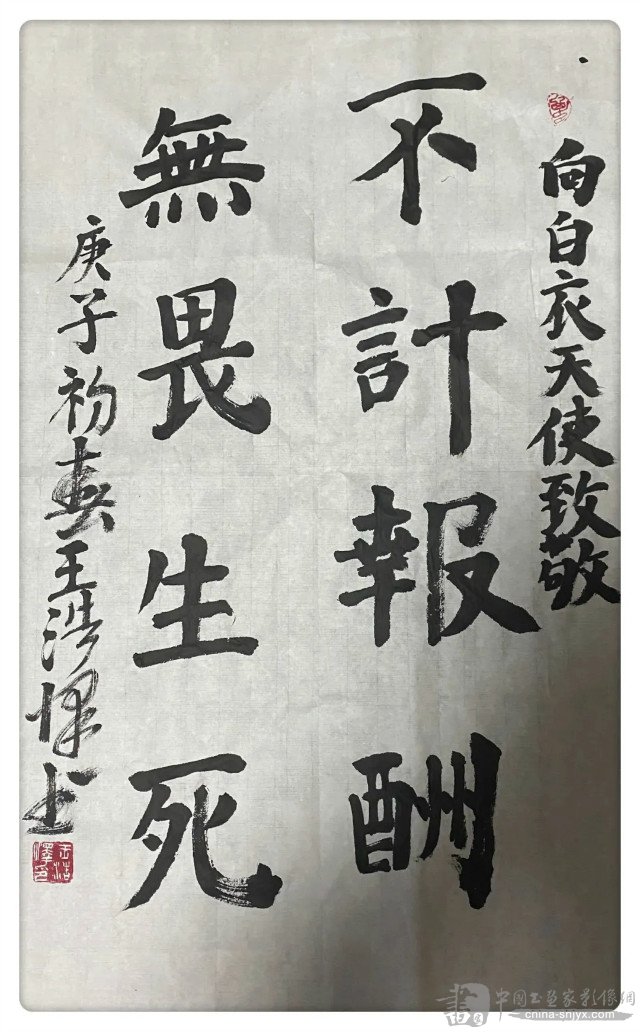 向白衣天使致敬
不計報酬
無畏生死
庚子初春王浩书
中國书画家影像網
china-shjyx.com